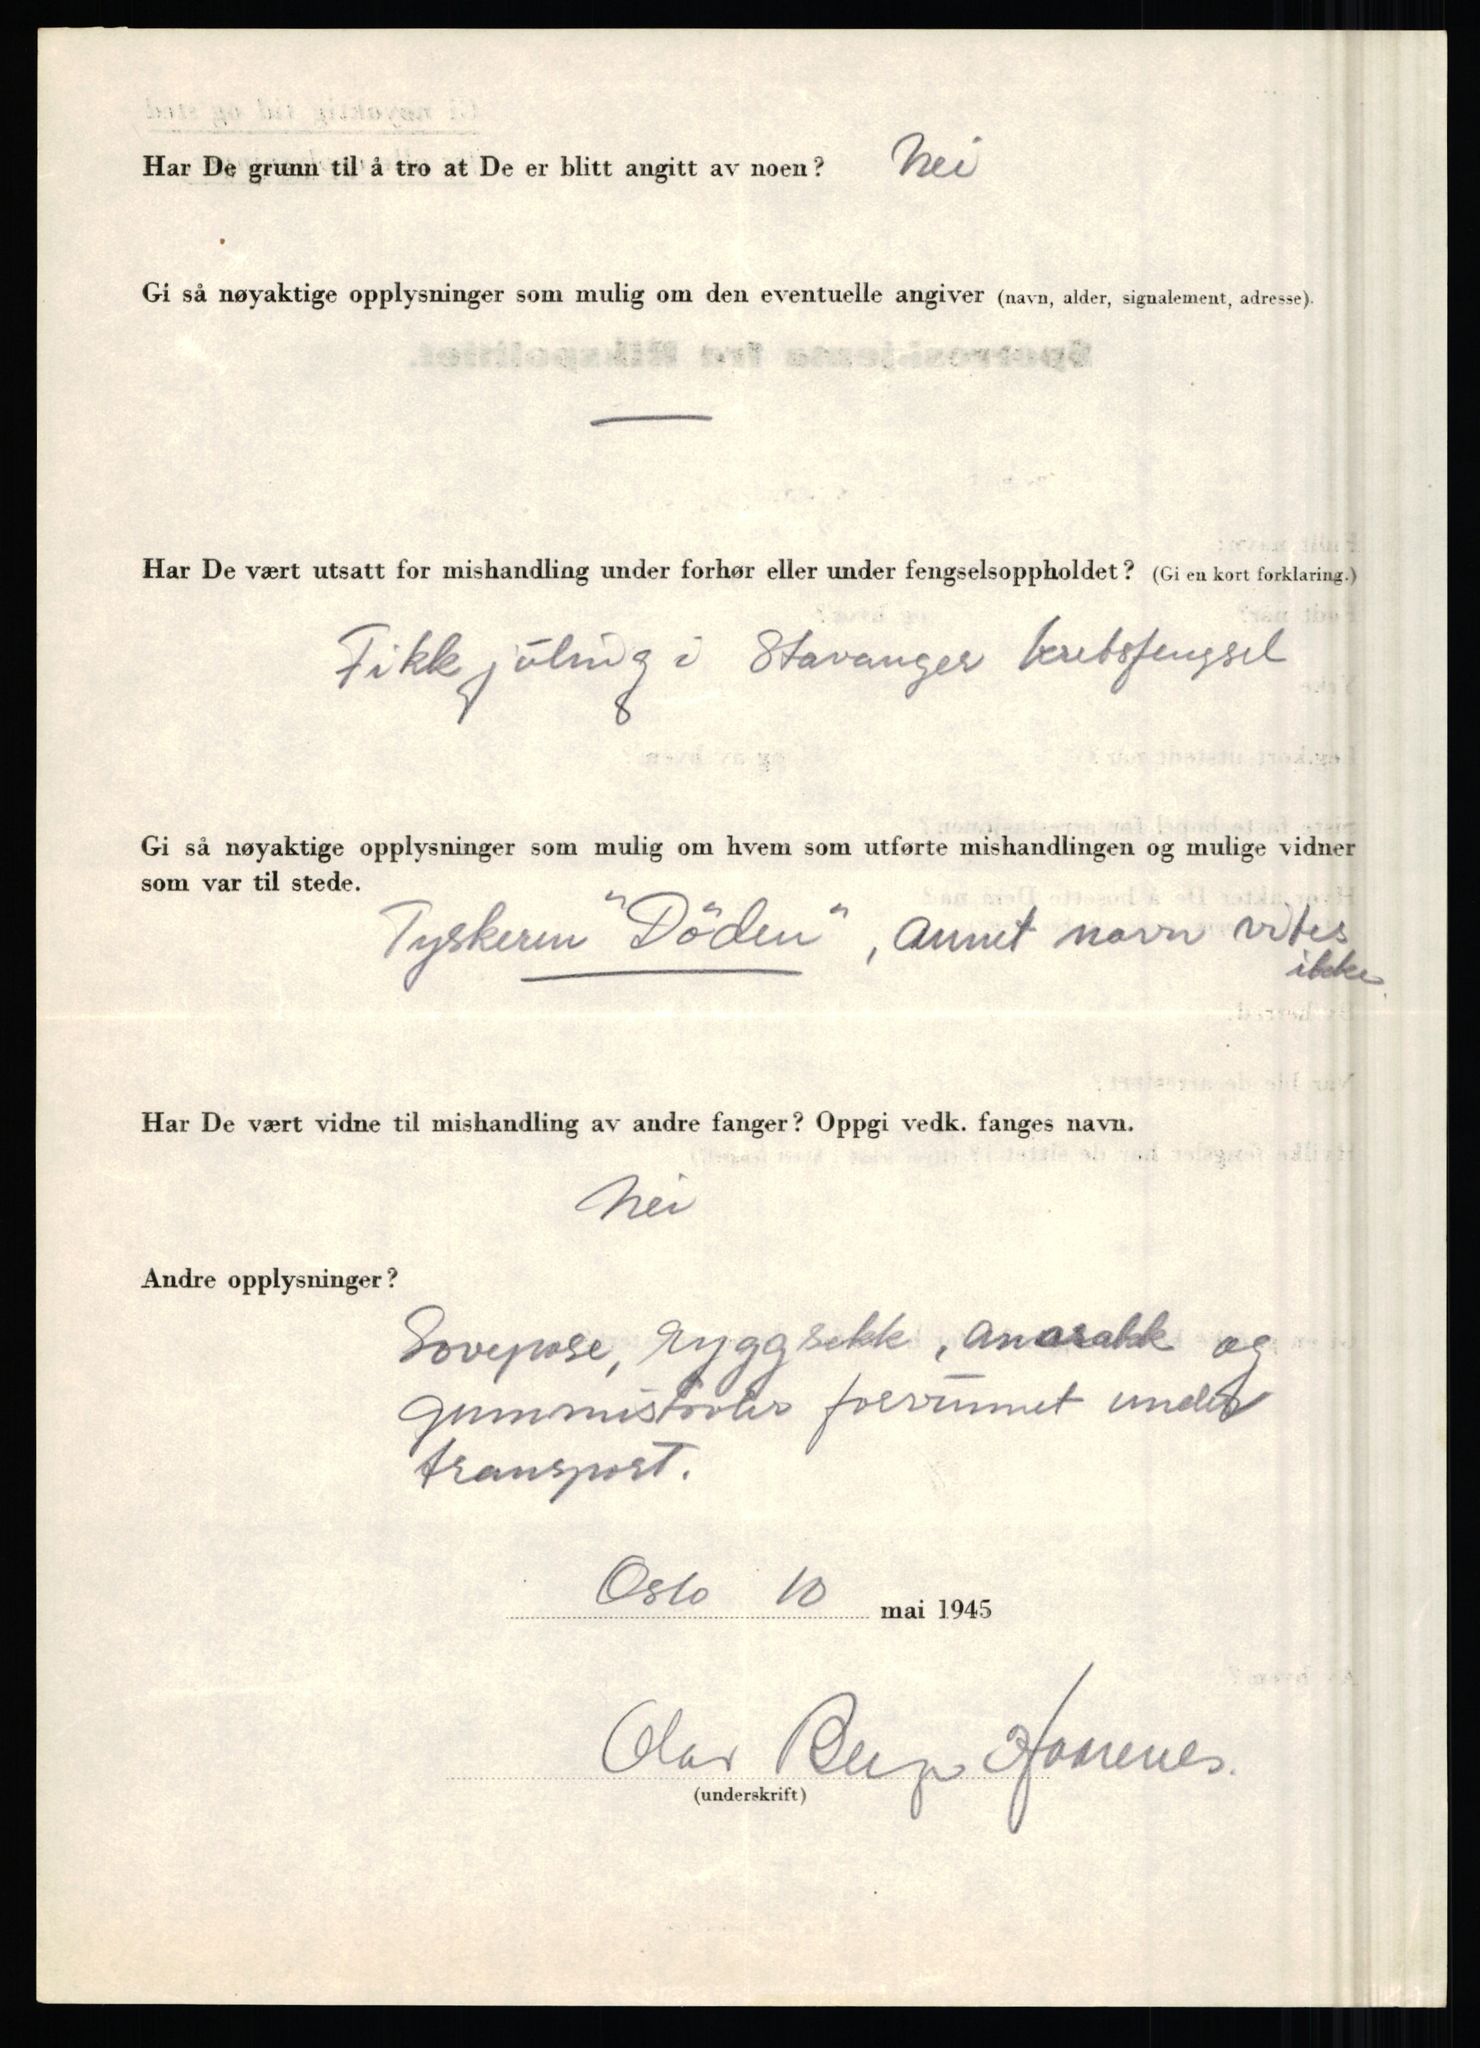 Har De grunn til å tro at De er blitt angitt av noen? Nei
Gi så nøyaktige opplysninger som mulig om den eventuelle angiver (navn, alder, signalement, adresse).
Har De vært utsatt for mishandling under forhør eller under fengselsoppholdet? (Gi en kort forklaring.)
Fikk juling i Stavanger kretsfengsel
Gi så nøyaktige opplysninger som mulig om hvem som utførte mishandlingen og mulige vidner
som var til stede.
Tyskeren "Döden", annet navn vites
ikke.
Har De vært vidne til mishandling av andre fanger? Oppgi vedk. fanges navn.
Nei
Andre opplysninger?
Sovepose, ryggsekk, anorakk og
gummistövler forsvunnet under
transport.
Oslo 10 mai 1945
Olav Berge
(underskrift)